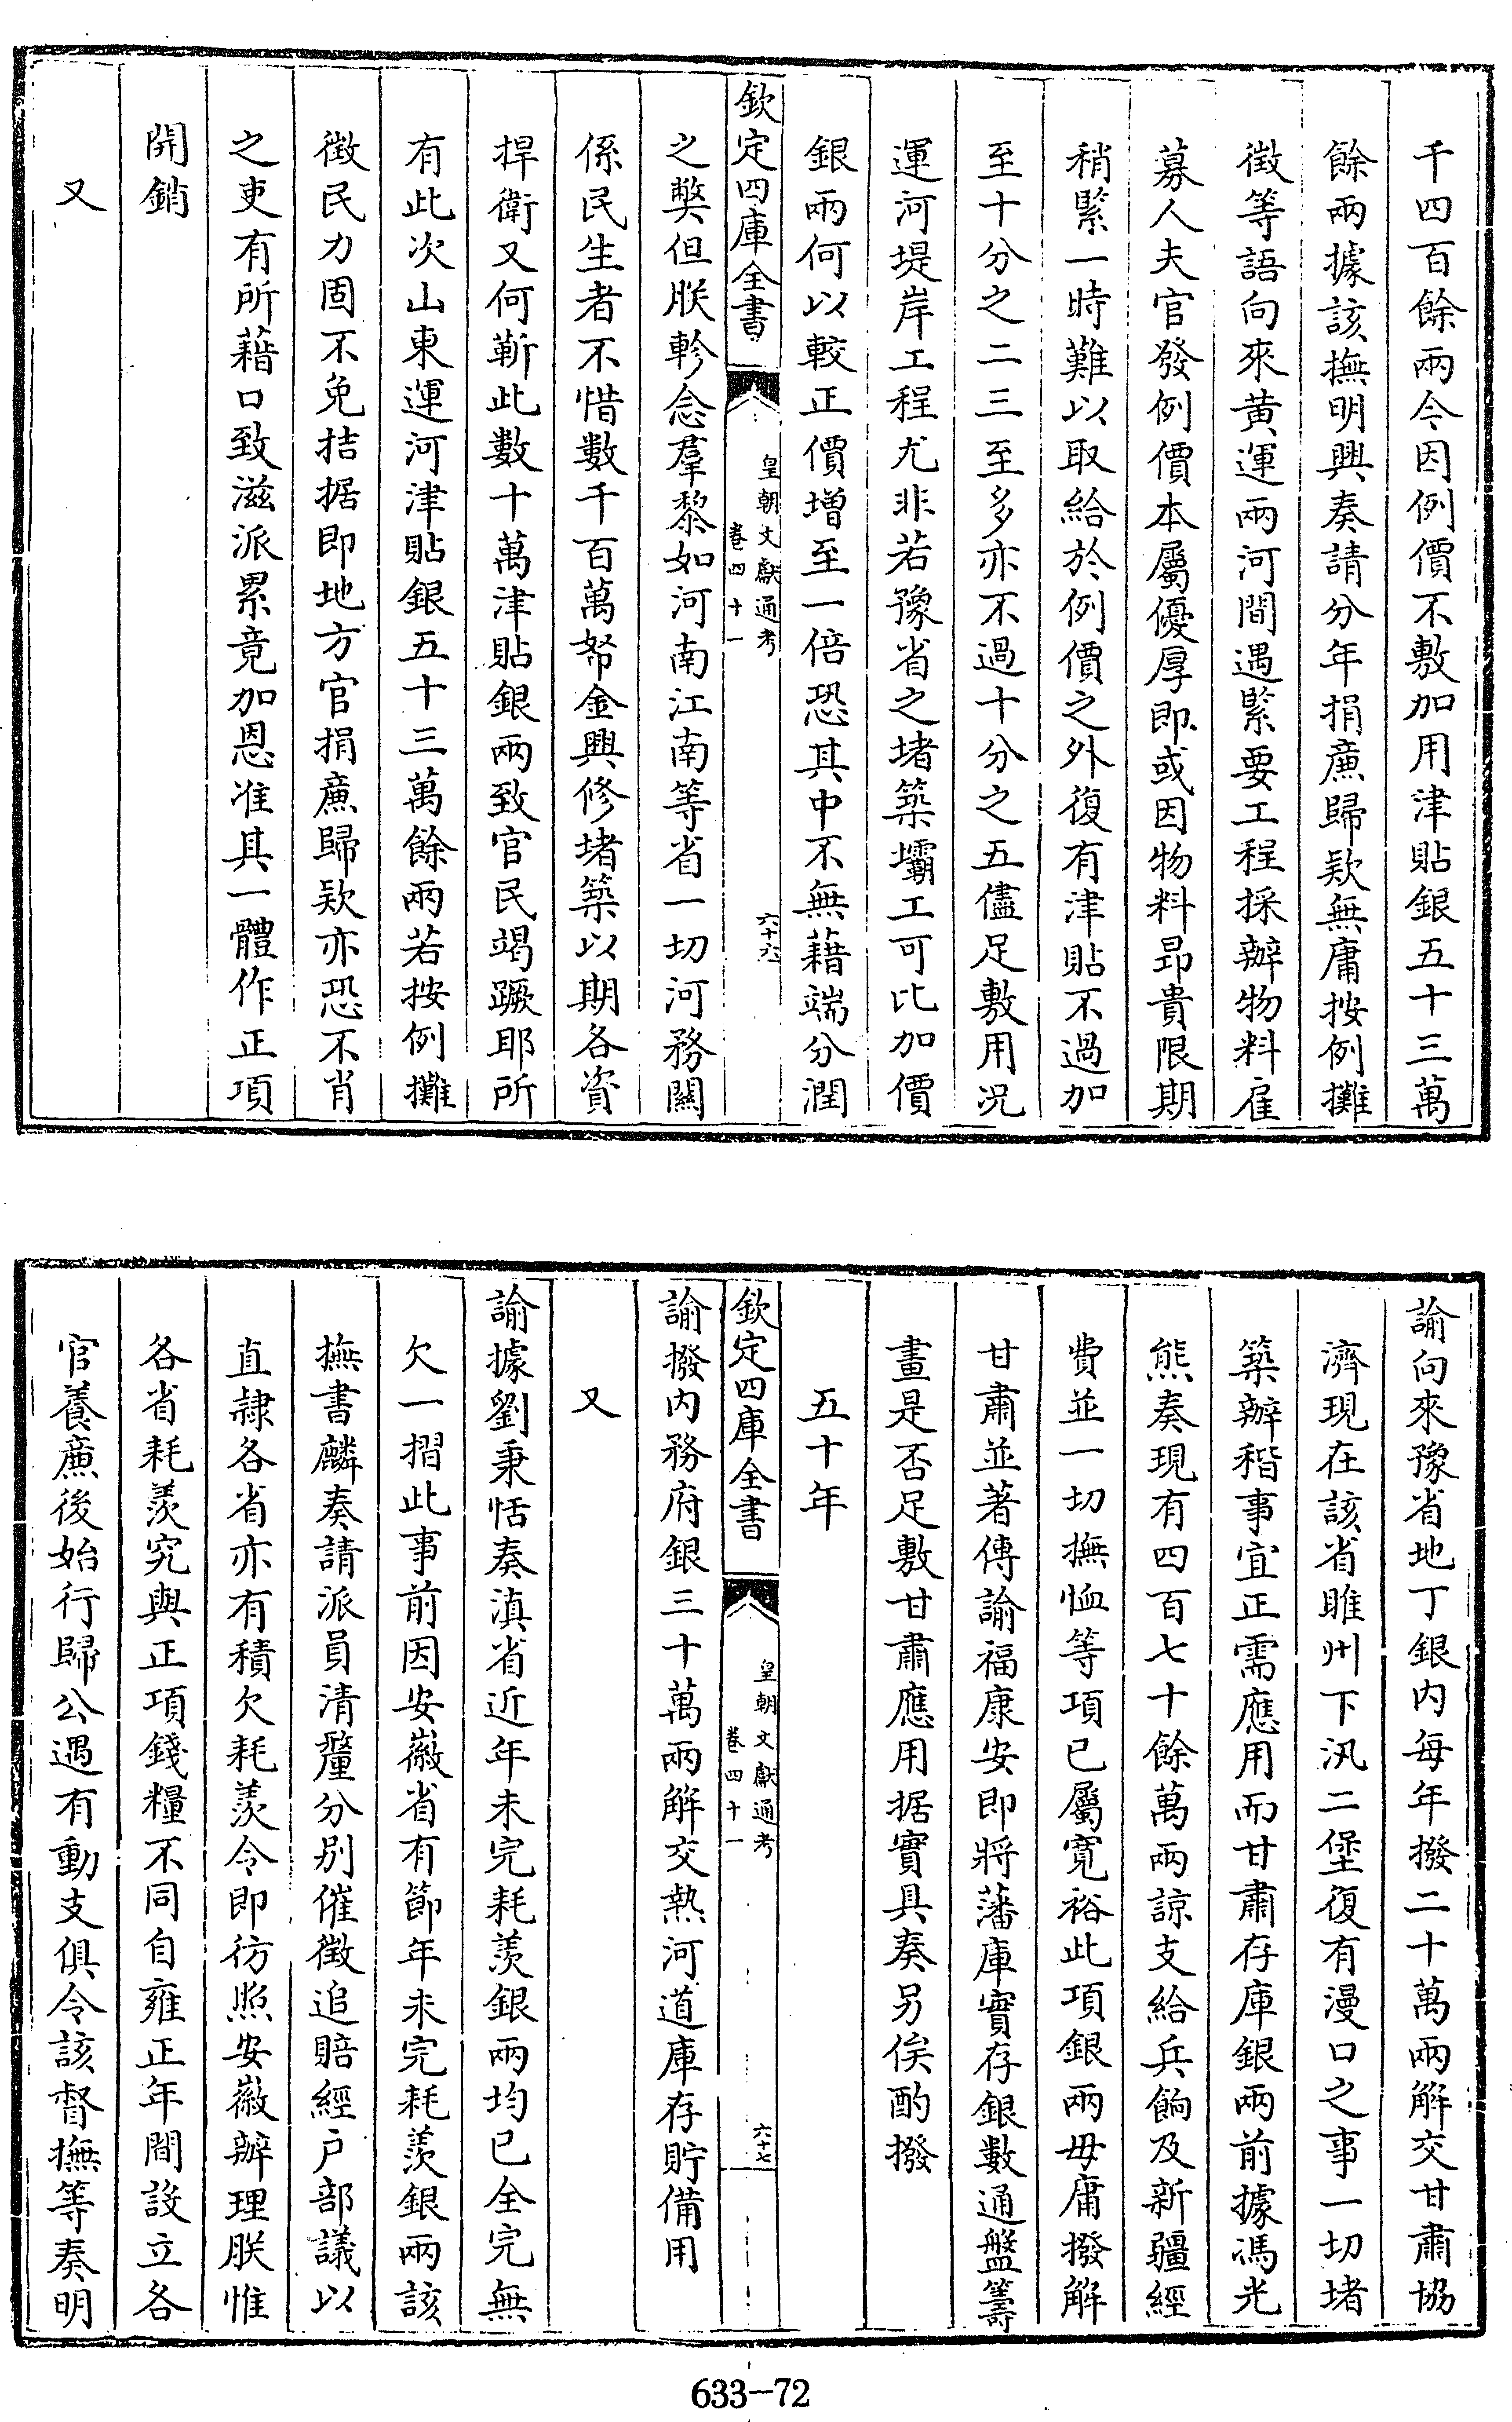 千四百餘兩今因例價不敷加用津貼銀五十三萬
餘兩據該撫明興奏請分年捐廉歸款無庸按例攤
徵等語向來黃運兩河間遇緊要工程採辦物料雇
募人夫官發例價本屬優厚即或因物料昂貴限期
稍緊一時難以取給於例價之外復有津貼不過加
至十分之二三至多亦不過十分之五儘足敷用況
運河堤岸工程尤非若豫省之堵築壩工可比加價
銀兩何以較正價增至一倍恐其中不無藉端分潤
欽定四庫全書
皇朝文獻通考
卷四十一
六十六
之弊但朕軫念羣黎如河南江南等省一切河務關
係民生者不惜數千百萬帑金興修堵築以期各資
捍衛又何靳此數十萬津貼銀兩致官民竭蹶耶所
有此次山東運河津貼銀五十三萬餘兩若按例攤
徵民力固不免拮据即地方官捐廉歸款亦恐不肖
之吏有所藉口致滋派累竟加恩准其一體作正項
開銷
又
諭向來豫省地丁銀內每年撥二十萬兩解交甘肅協
濟現在該省睢州下汛二堡復有漫口之事一切堵
築辦稭事宜正需應用而甘肅存庫銀兩前據馮光
熊奏現有四百七十餘萬兩諒支給兵餉及新疆經
費並一切撫恤等項已屬寬裕此項銀兩毋庸撥解
甘肅並著傳諭福康安即將藩庫實存銀數通盤籌
畫是否足敷甘肅應用据實具奏另俟酌撥
五十年
欽定四庫全書
皇朝文獻通考
卷四十一
六十七
諭撥內務府銀三十萬兩解交熱河道庫存貯備用
又
諭據劉秉恬奏滇省近年未完耗羨銀兩均已全完無
欠一摺此事前因安徽省有節年未完耗羨銀兩該
撫書麟奏請派員清釐分別催徵追賠經戶部議以
直隸各省亦有積欠耗羨令即彷照安徽辦理朕惟
各省耗羨究與正項錢糧不同自雍正年間設立各
官養廉後始行歸公遇有動支俱令該督撫等奏明
633-72